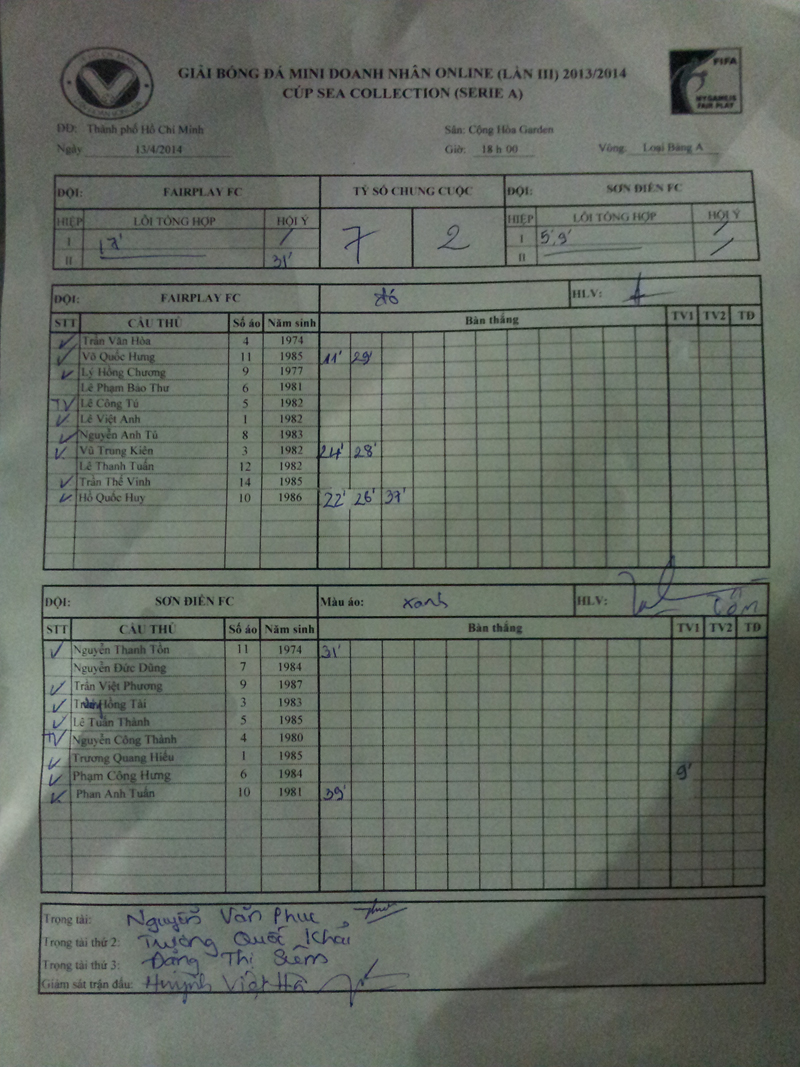 GIẢI BÓNG ĐÁ MINI DOANH NHÂN ONLINE (LẦN III) 2013/2014
CÚP SEA COLLECTION (SERIE A)
FIFA
MY GAME IS
FAIR PLAY
ĐĐ: Thành phố Hồ Chí Minh Sân: Cộng Hòa Garden
Ngày 13/4/2014 Giờ: 18 h 00 Vòng: Loại Bảng A
ĐỘI: FAIRPLAY FC TỶ SỐ CHUNG CUỘC ĐỘI: SƠN DIÊN FC
HIỆP LỖI TỔNG HỢP HỘI Ý 7 2 HIỆP LỖI TỔNG HỢP HỘI Ý
I 17' / I 5' 9' /
II 31' II /
ĐỘI: FAIRPLAY FC đỏ HLV:
STT CẦU THỦ Số áo Năm sinh Bàn thắng TV1 TV2 TĐ
Trần Văn Hòa 4 1974
Võ Quốc Hưng 11 1985 11' 29'
Lý Hồng Chương 9 1977
Lê Phạm Bảo Thư 6 1981
Lê Công Tú 5 1982
Lê Việt Anh 1 1982
Nguyễn Anh Tú 8 1983
Vũ Trung Kiên 3 1982 24' 28'
Lê Thanh Tuấn 12 1982
Trần Thế Vinh 14 1985
Hồ Quốc Huy 10 1986 22' 26' 37'
ĐỘI: SƠN DIÊN FC Màu áo: xanh HLV: Tồn
STT CẦU THỦ Số áo Năm sinh Bàn thắng TV1 TV2 TĐ
Nguyễn Thanh Tồn 11 1974 31'
Nguyễn Đức Dũng 7 1984
Trần Việt Phương 9 1987
Hồng Tài 3 1983
Lê Tuấn Thành 5 1985
Nguyễn Công Thành 4 1980
Trương Quang Hiếu 1 1985
Phạm Công Hưng 6 1984 9'
Phan Anh Tuấn 10 1981 39'
Trọng tài: Nguyễn Văn Phúc
Trọng tài thứ 2: Trương Quốc Khải
Trọng tài thứ 3: Đặng Thị Siêm
Giám sát trận đấu: Huỳnh Việt Hà